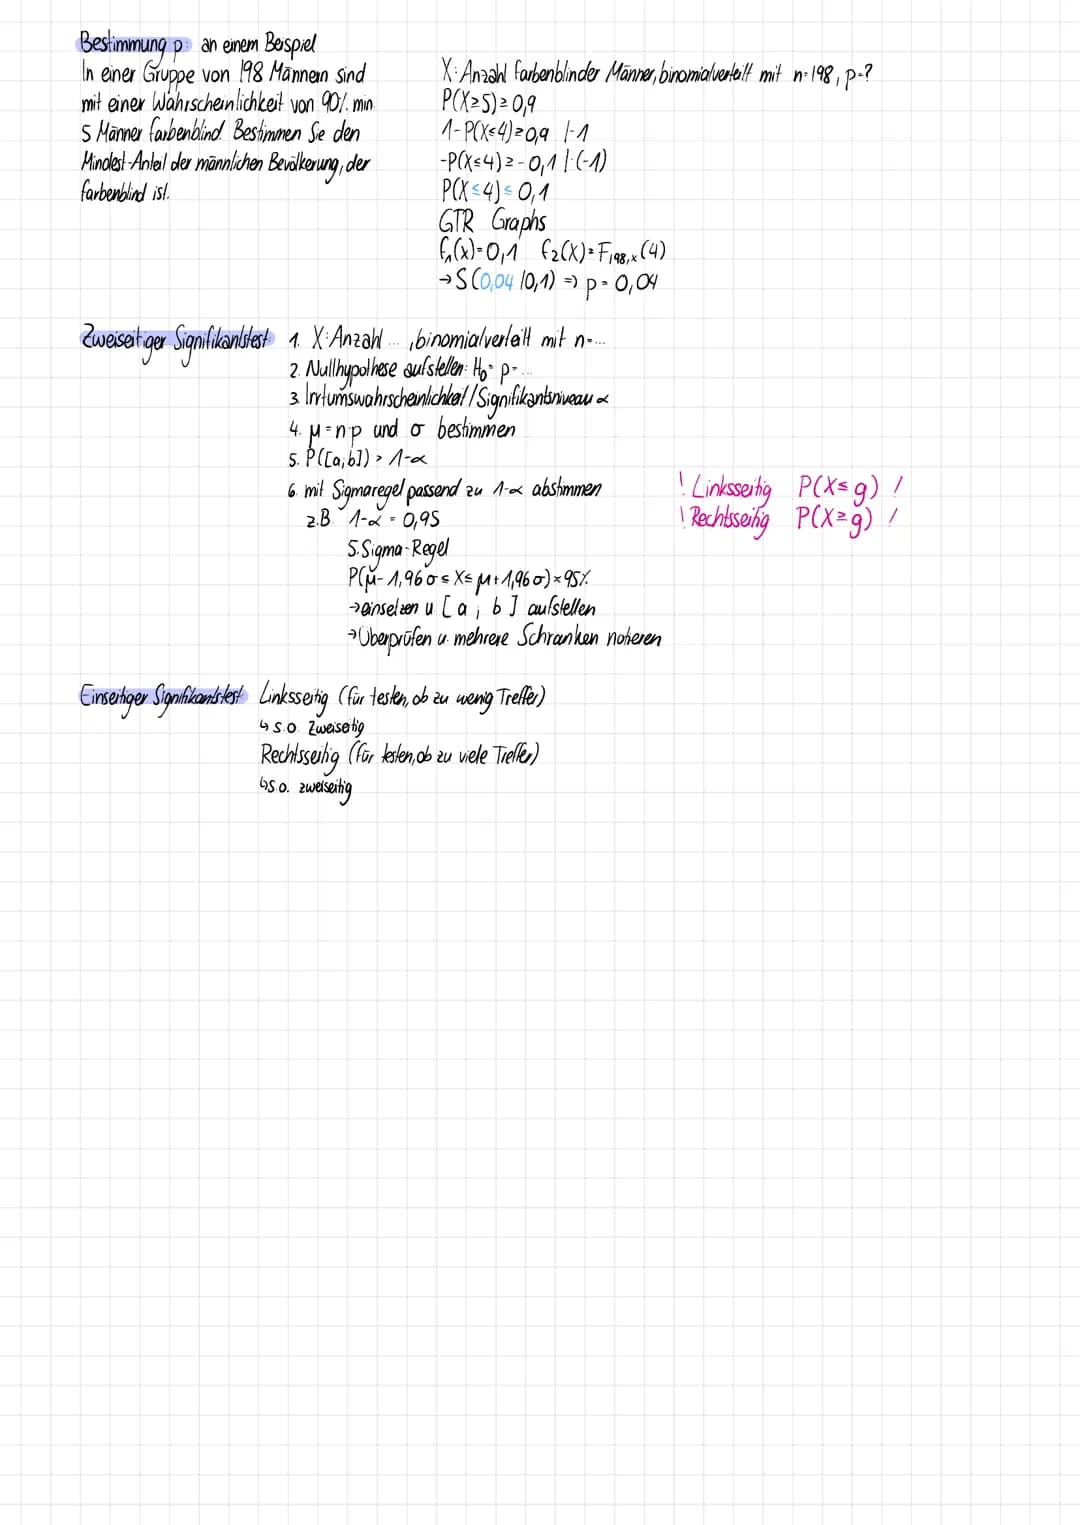 Bestimmung p: an einem Beispiel
In einer Gruppe von 198 Männern sind
mit einer Wahrscheinlichkeit von 90% min.
5 Männer farbenblind. Bestimmen Sie den
Mindest-Anteil der männlichen Bevölkerung, der
farbenblind ist.
X: Anzahl farbenblinder Männer, binomialverteilt mit n=198, p=?
P(X≥5)≥0,9
1-P(X≤4)≥0,9 |-1
-P(X≤4)≥-0,1 |·(-1)
P(X≤4)≤0,1
GTR Graphs
f₁(x)=0,1 f₂(x)=F₁₉₈,ₓ(4)
→S(0,04/0,1) => p=0,04
Zweiseitiger Signifikantstest 1. X: Anzahl ..., binomialverteilt mit n=...
2. Nullhypothese aufstellen: H₀: p=...
3. Irrtumswahrscheinlichkeit/Signifikantsniveau α
4. μ=n·p und σ bestimmen
5. P([a;b]) > 1-α
6. mit Sigmaregel passend zu 1-α abstimmen
z.B. 1-α = 0,95
5. Sigma-Regel
P(μ-1,96σ≤X≤μ+1,96σ)≈95%
→einsetzen u. [a ; b] aufstellen
→Überprüfen u. mehrere Schranken notieren
! Linksseitig P(X≤g) !
! Rechtsseitig P(X≥g) !
Einseitiger Signifikantstest Linksseitig (für testen, ob zu wenig Treffer)
↳ s.o. Zweiseitig
Rechtsseitig (für testen, ob zu viele Treffer)
↳ s.o. zweiseitig